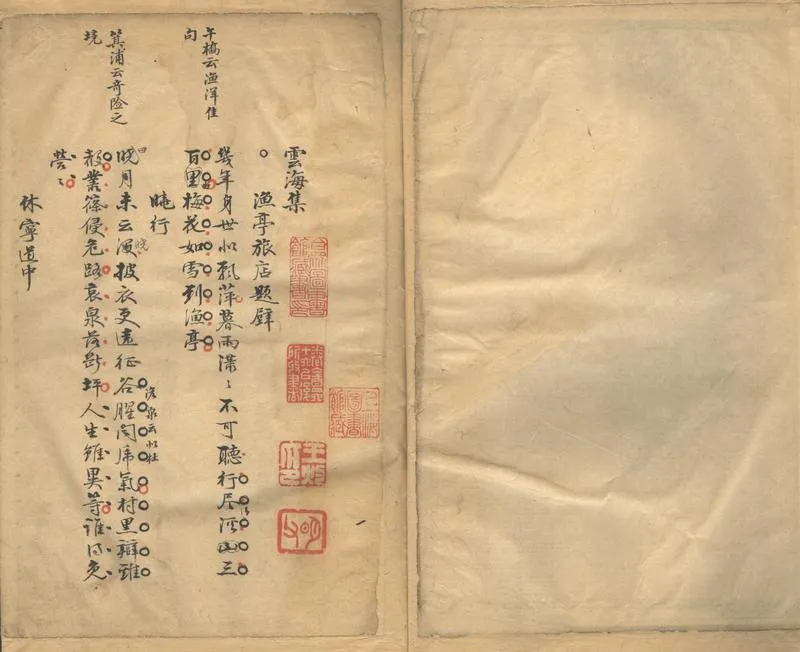 雲海集
漁亭旅店題壁
幾年身世似飄萍暮雨瀟〻不可聽行尽溪山三
午橋云漁洋佳
句
百里梅花如雪到漁亭
曉行
曉月未云沒披衣更遠征谷腥聞虎氣村黑辯雞
泉云似杜
箕浦云奇險之
境
叢篠侵危路哀泉落斷坪人生雖異等誰得免
營〻
休寧道中
上海圖書館藏